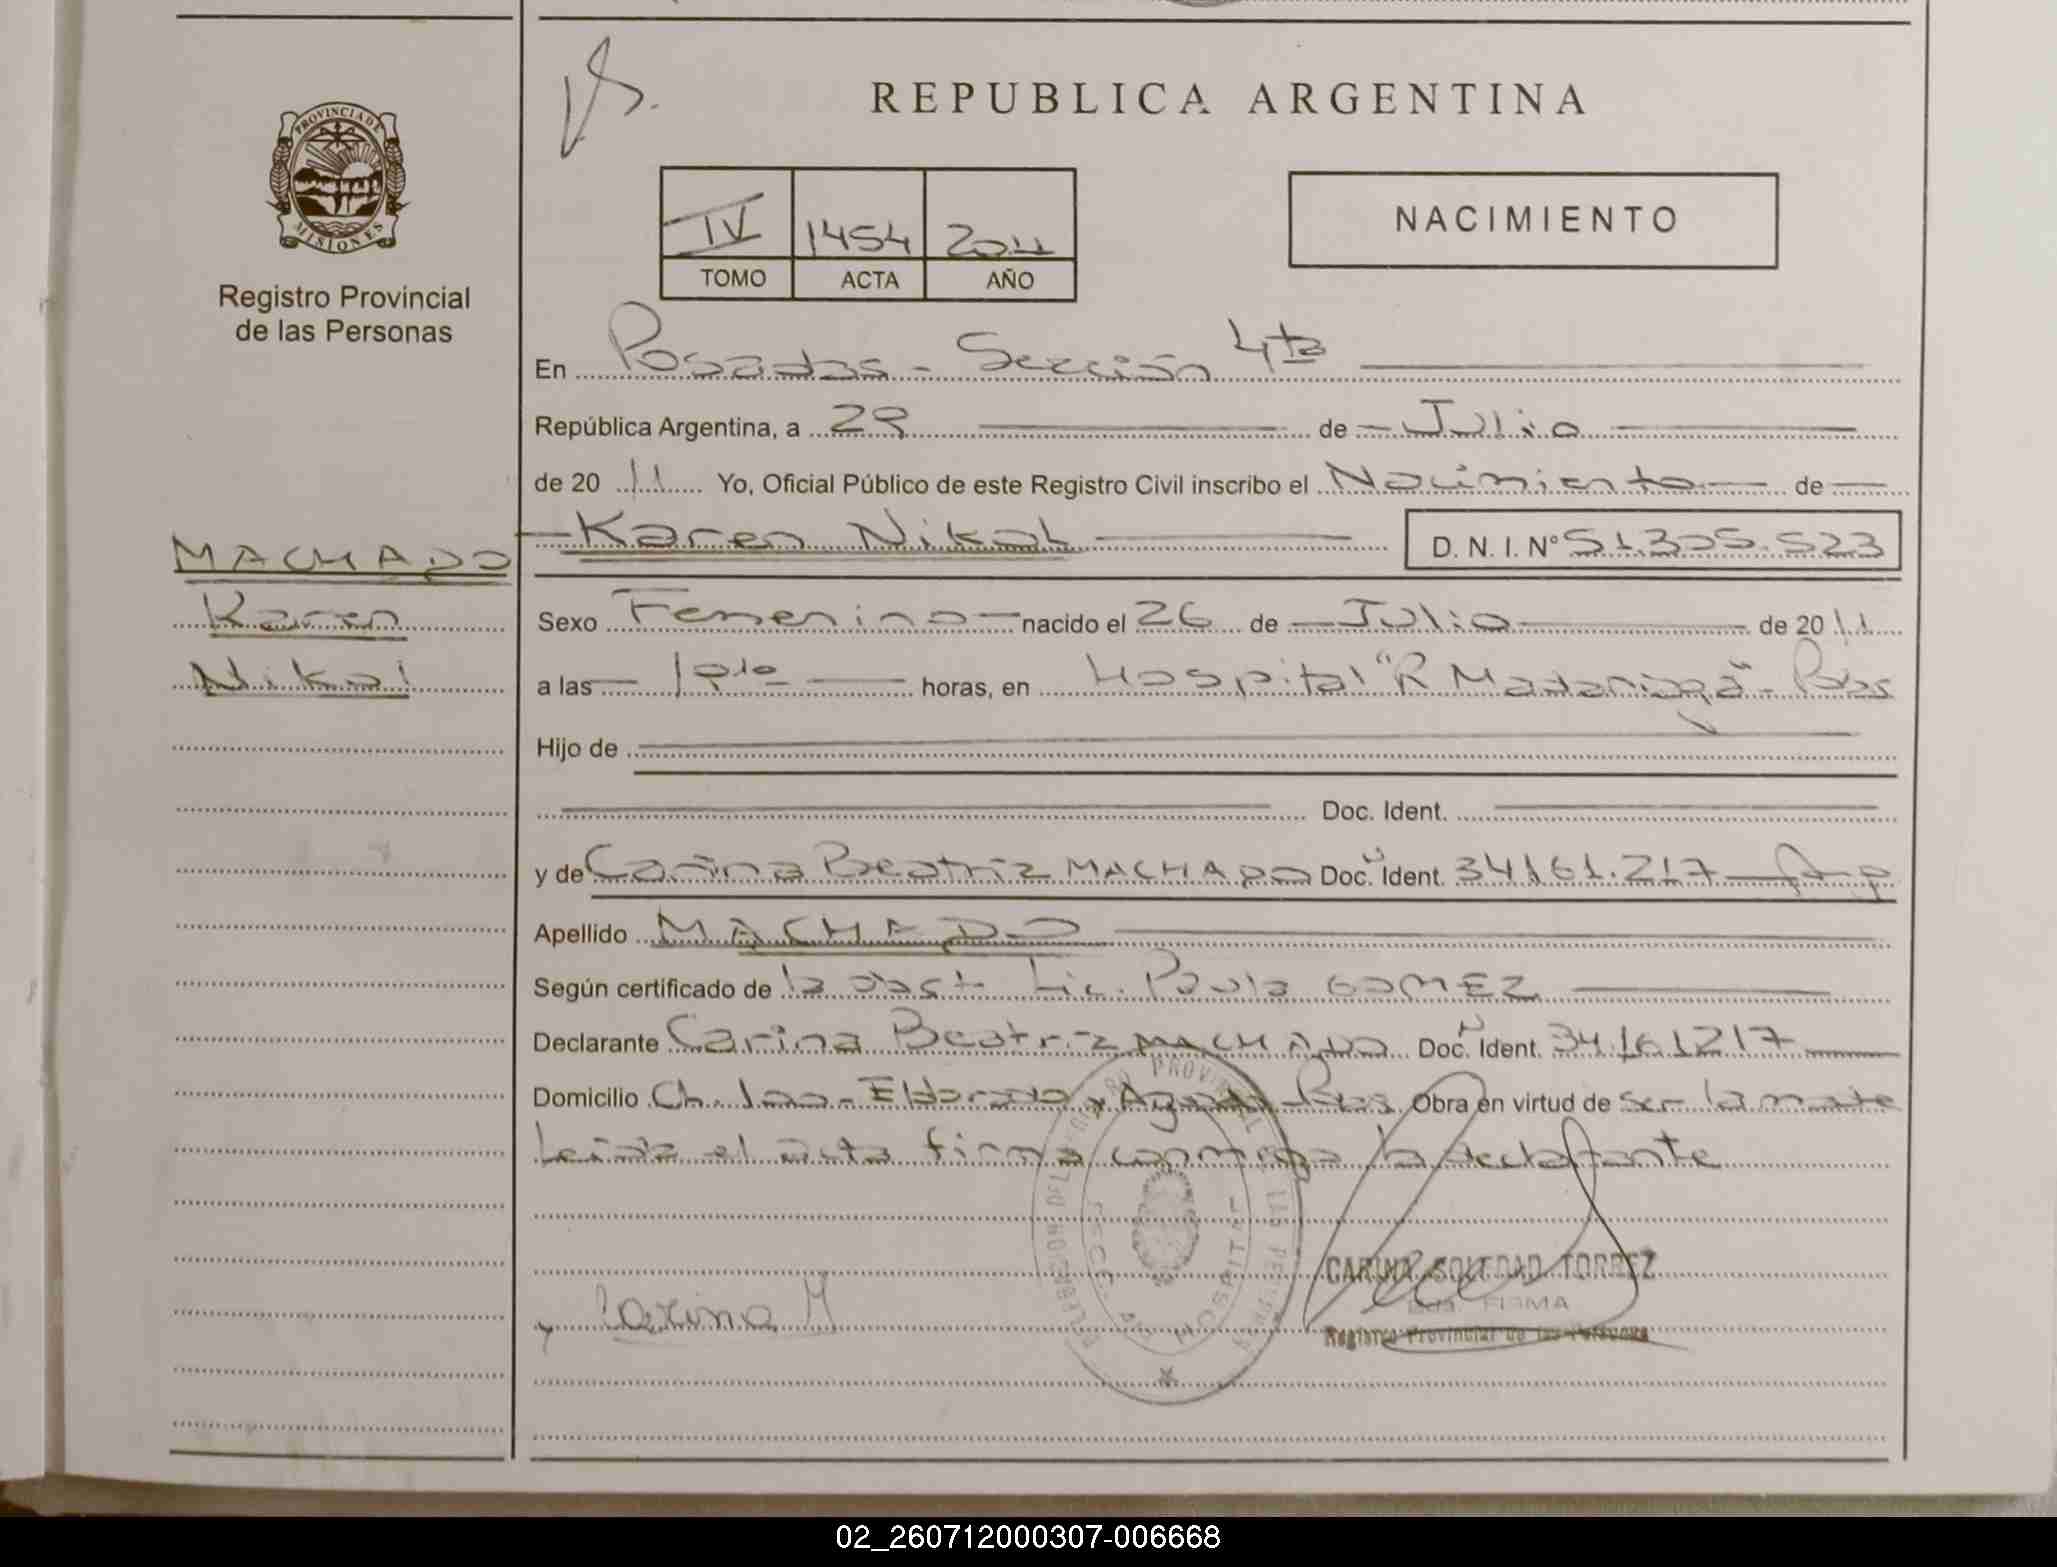 REPUBLICA ARGENTINA
PROVINCIA DE MISIONES
Registro Provincial
de las Personas
IV 1454 2011
TOMO ACTA AÑO
NACIMIENTO
En Posadas - Sección 4ta
República Argentina, a 29 de Julio
de 20 11 Yo, Oficial Público de este Registro Civil inscribo el Nacimiento de
Karen Nikol D. N. I. Nº 51.305.523
MACHADO
Karen
Nikol
Sexo Femenino nacido el 26 de Julio de 20 11
a las 19:10 horas, en Hospital "R Madariaga" - Pdas
Hijo de
Doc. Ident.
y de Carina Beatriz MACHADO Doc. Ident. 34161.217
Apellido MACHADO
Según certificado de la obst. Lic. Paula GOMEZ
Declarante Carina Beatriz MACHADO Doc. Ident. 34161217
Domicilio Ch. 100 - Eldorado y Aguado Pdas Obra en virtud de ser la madre
Leída el acta firma conmigo la declarante
Carina M
CARINA SOLEDAD TORREZ
FIRMA
Registro Provincial de las Personas
02_260712000307-006668